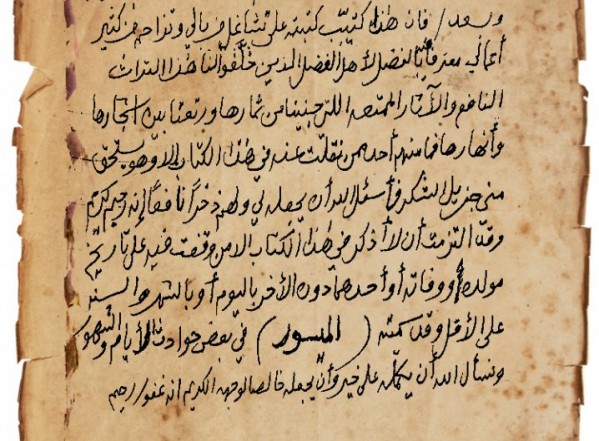 وبعد / فإن هذا كتيّب كتبته على تشاغل من بالي وتزاحم من كثير
أعمالي معترفا بالفضل لأهل الفضل الذين خلّفوا لنا هذا التراث
النافع والآثار الممتعه اللتي جنينا من ثمارها ورتعنا بين اشجارها
وأنهارها فما منهم أحد ممن نقلت عنه في هذا الكتاب إلا وهو يستحق
مني جزيل الشكر فأسئل الله أن يجعله لي ولهم ذخراً نافعا إنه رحيم كريم
وقد التزمت أن لا أذكر في هذا الكتاب إلا من وقفت فيه على تاريخ
مولده ووفاته أو أحدهما دون الأخر باليوم أو بالشهر والسنه
على الأقل وقد سميته ( الميسور ) في بعض حوادث الأيام والشهور
ونسأل الله أن يكمّله على خير وأن يجعله خالصا لوجهه الكريم انه غفور رحيم